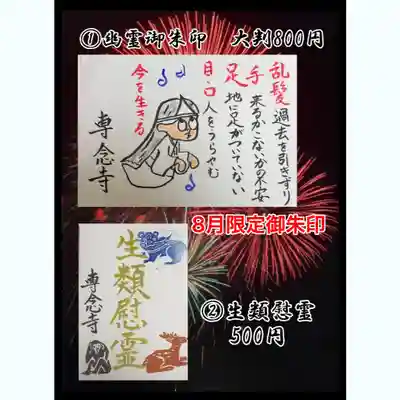 ①幽霊御朱印 大判800円
乱髪 過去を引きずり
手 来るかこないかの不安
足 地に足がついていない
目・口 人をうらやむ
今を生きる
専念寺
8月限定御朱印
生類慰霊
専念寺
②生類慰霊
500円